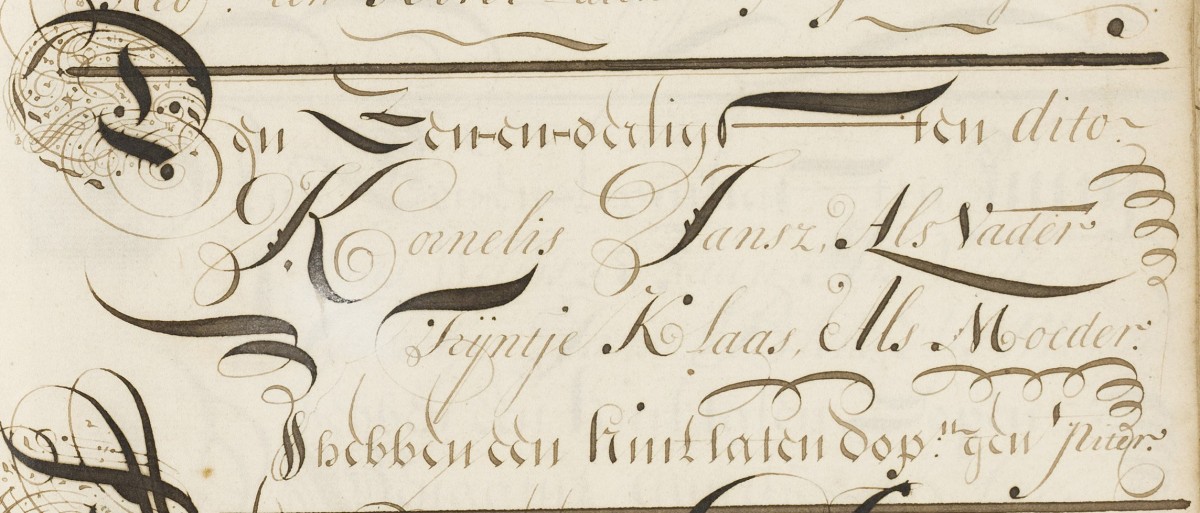 Den Een-en-dertigst ten dito
Kornelis Jansz, Als Vader
Trÿntje Klaas, Als Moeder:
hebben een kint laten dop:n gen Piter.